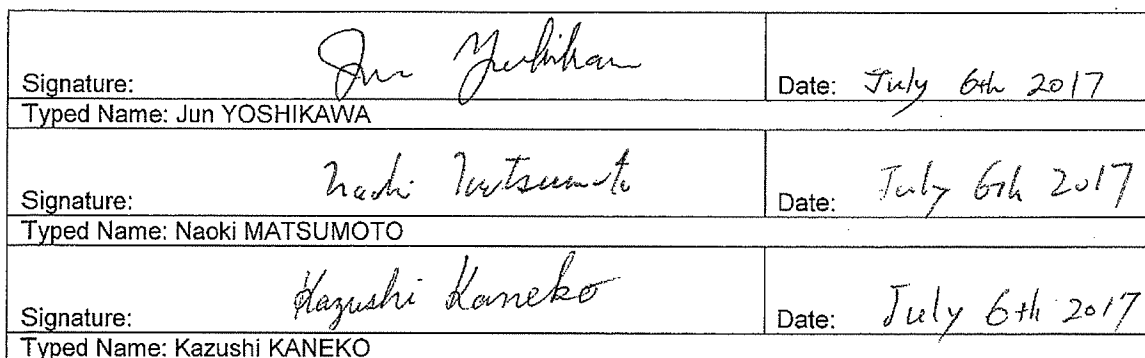 Signature: Jun Yoshikawa Date: July 6th 2017
Typed Name: Jun YOSHIKAWA
Signature: Naoki Matsumoto Date: July 6th 2017
Typed Name: Naoki MATSUMOTO
Signature: Kazushi Kaneko Date: July 6th 2017
Typed Name: Kazushi KANEKO